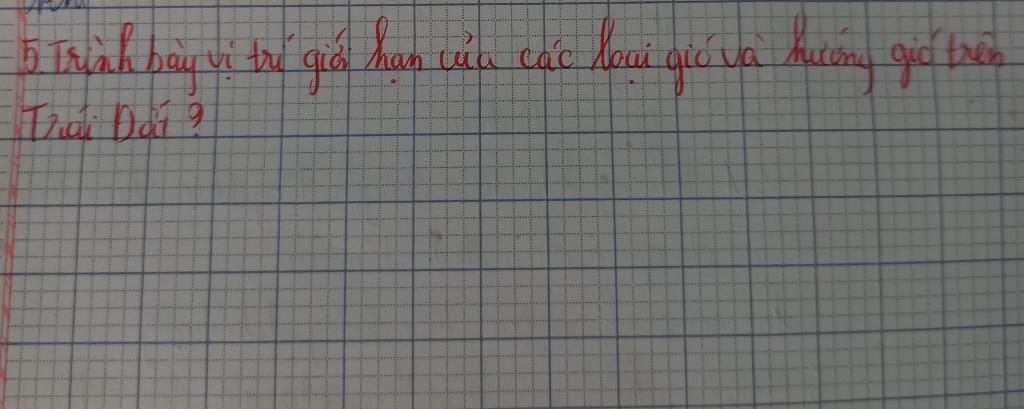 5. Trình bày vị trí giới hạn của các loại gió và hướng gió trên
Trái Đất ?